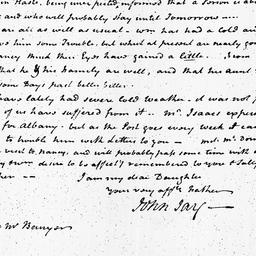 in Haste, being just informed that a Person is about
and who will probably stay until Tomorrow —
are all as well as usual — Wm has had a Cold and
him some Trouble, but what at present are nearly gone
Eyes have gained a little from
that he & his Family are well, and that his Aunt
some Days past better
have lately had severe cold Weather — it was not
of us have suffered from it — Mr. Isaacs expects
for Albany — but as the Post goes every week it can
to trouble him with Letters to you —
used to Nancy, and will probably pass some time with
desire to be affecty remembered to you & Sally
I am my dear Daughter
Your very affte Father
John Jay —
Mrs Banyer